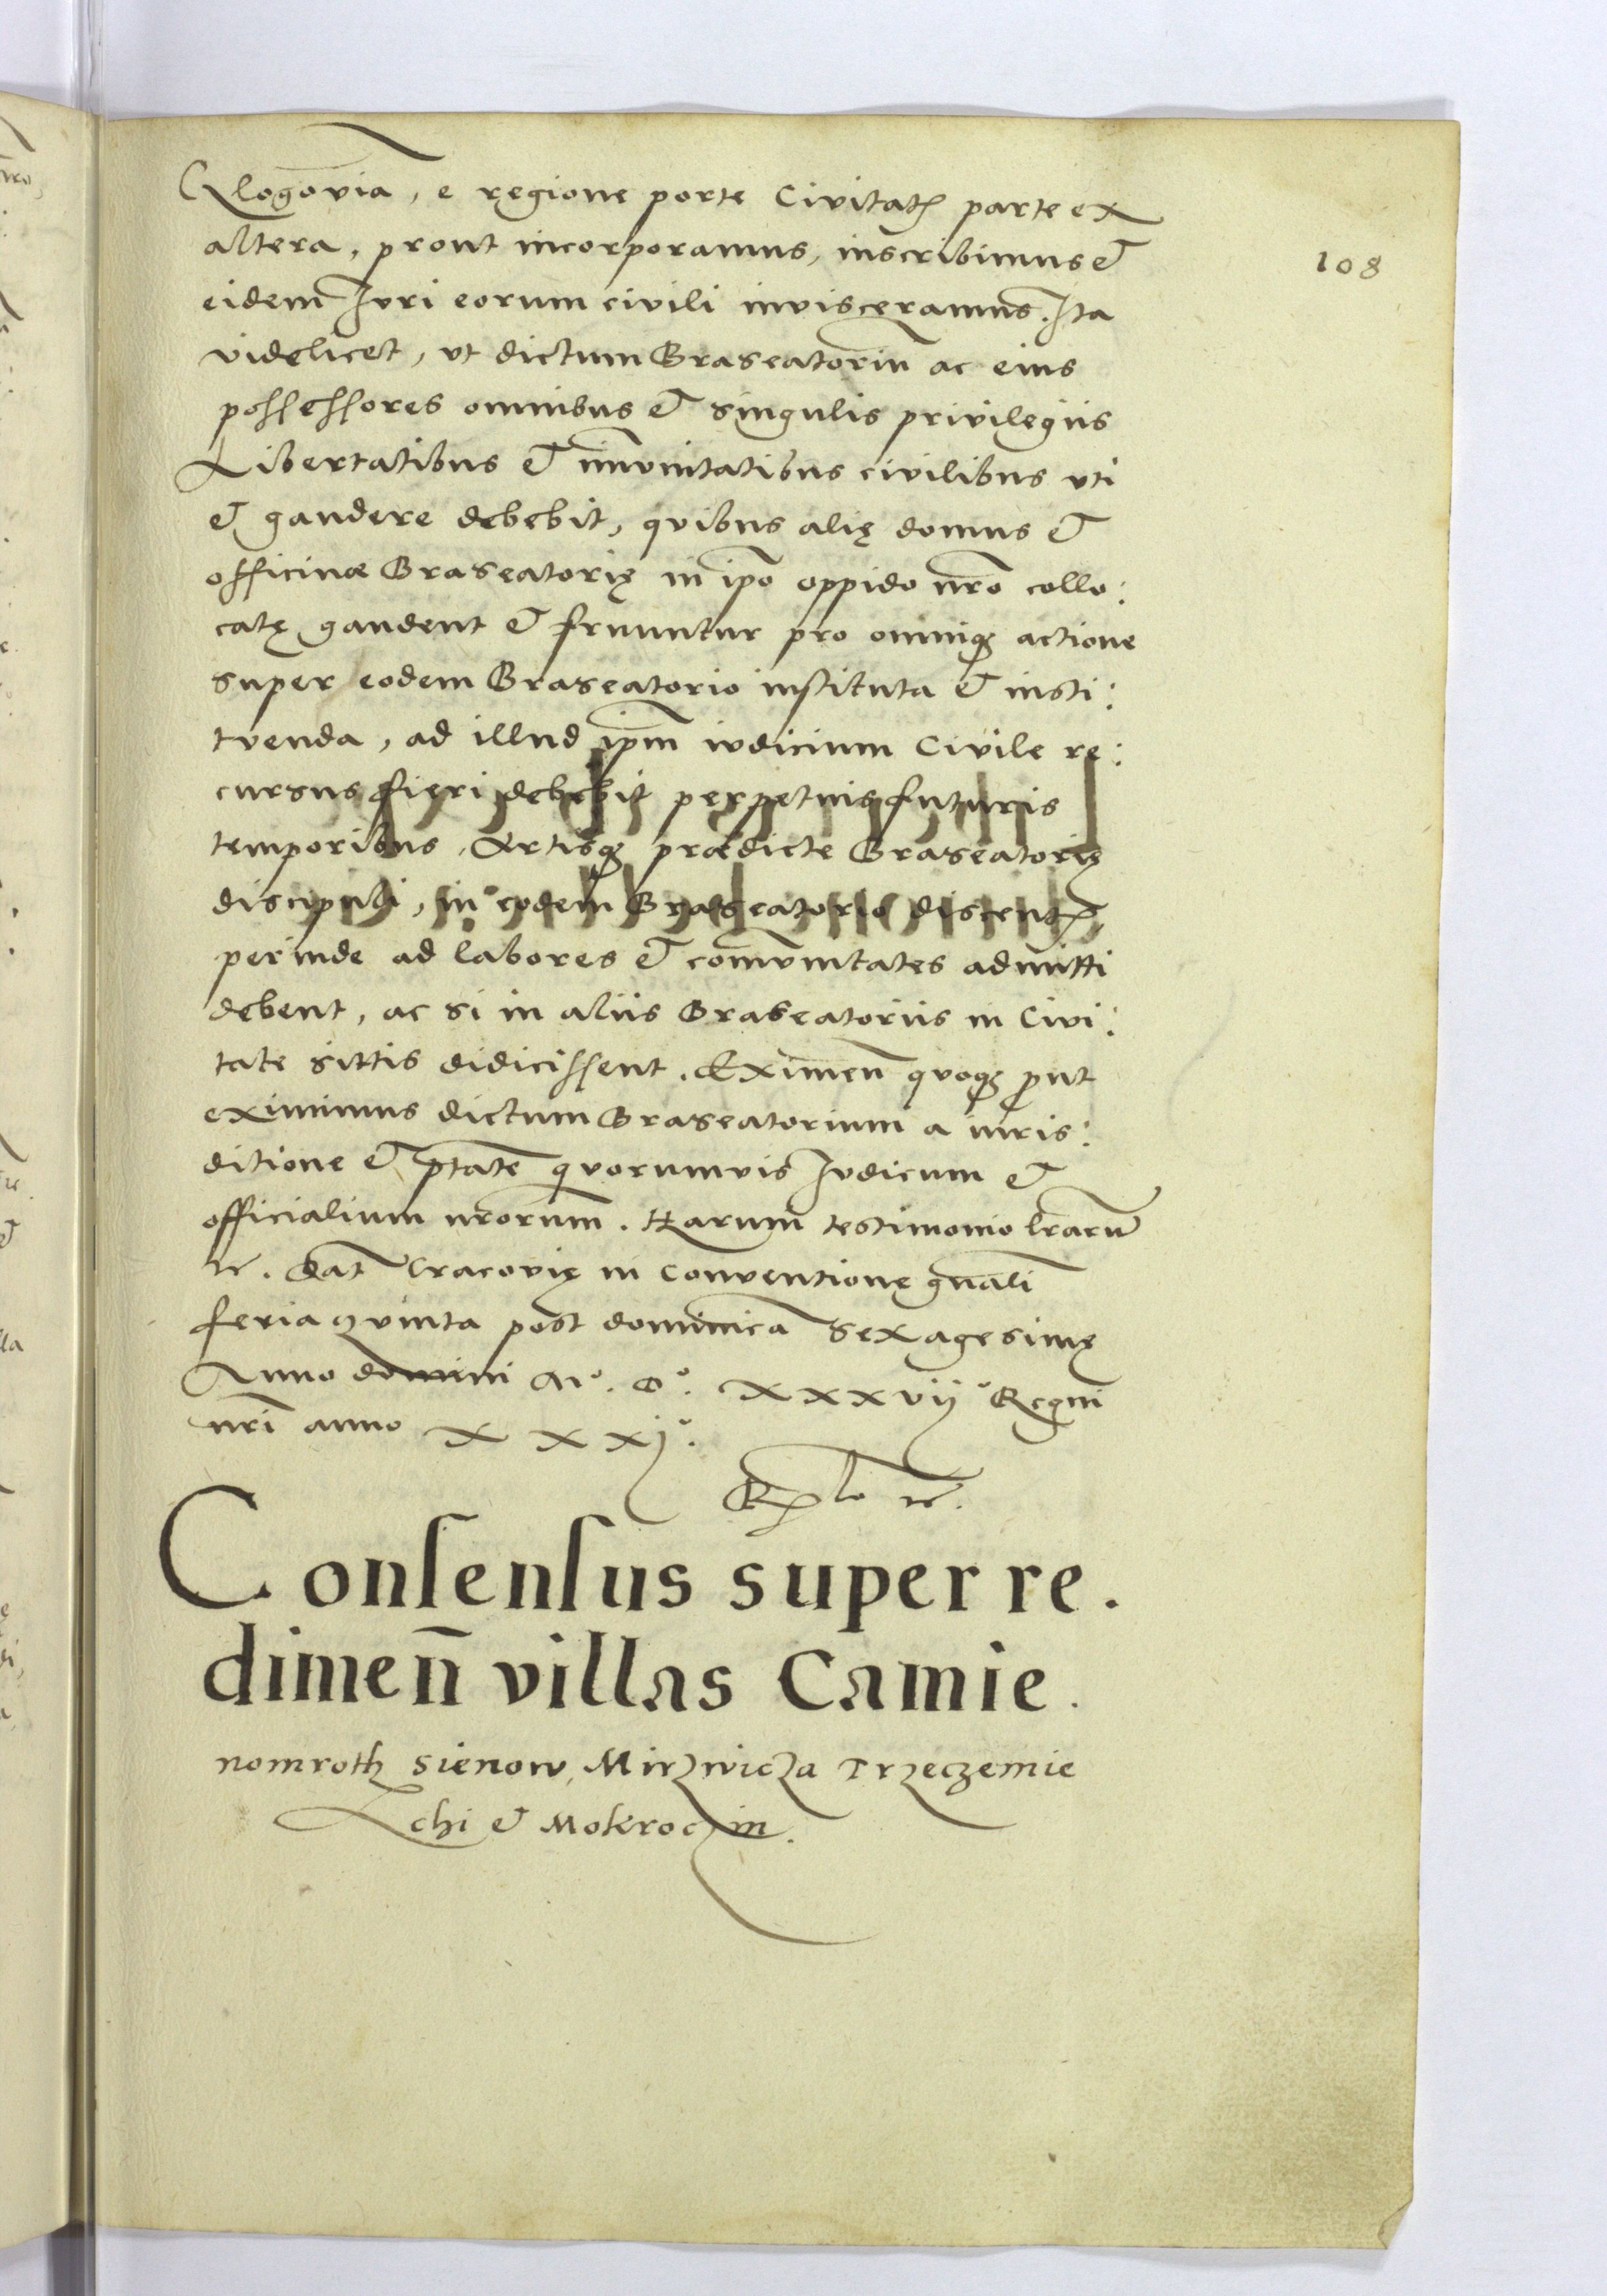 Rlogovia, e regione porte Civitatꝭ parte ex
altera, prout incorporamus, inscribimus et
108
eidem Iuri eorum civili invisceramus. Ita
videlicet, ut dictum Braseatoriū ac eius
possessores omnibus et singulis privilegiis
Libertatibus et im̄unitatibus civilibus uti
et gaudere debebit, quibus alię domus et
officinæ Braseatorię in ip̄o oppido nr̄o collo:
catę gaudent et fruuntur pro omniqꝫ actione
super eodem Braseatorio instituta et insti:
tuenda, ad illud ip̄m iudicium Civile re:
cursus fieri debebit perpetuis futuris
temporibus, Artisqꝫ prædicte Braseatorię
discipuli, in eodem Braseatorio discentꝭ,
perinde ad labores et com̄unitates admitti
debent, ac si in aliis Braseatoriis in Civi:
tate sittis didicissent. Eximen̄ quoqꝫ ꝓut
eximimus dictum Braseatorium a iuris:
ditione et p̄tatē quorumvis Iudicum et
officialium nr̄orum. Harum testimonio lr̄arū
etc. Dat̄ Cracovię in Conventione gn̄ali
feria quinta post dominicā Sexagesimę
Anno domini Mº. Dº. xxxvijº Regni
nr̄i anno xxxjº.
Consensus super re.
dimen̄ villas Camie.
nomroth Sienow, Mirzwicza Trzeczemie
chi et Mokroczin.